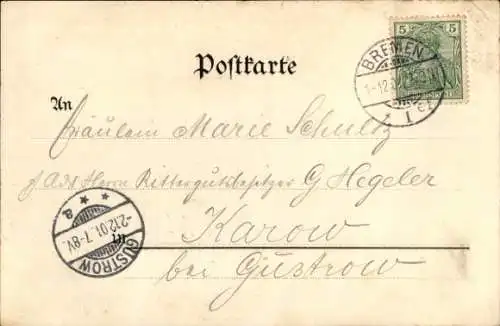 5 5
BREMEN
1
Postkarte
An
Fräulein Marie Schultz
Herrn Rittergutsbesitzer G Hegeler
a
2.12.01.7-8V.
GÜSTROW
in
Karow
bei Güstrow